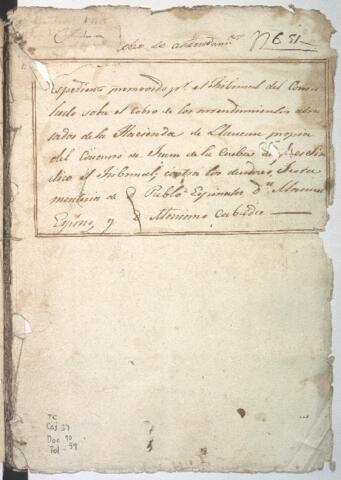 Cobro de arrendam.tos N 6 51
Expediente promovido p.r el Tribunal del Consu
lado sobre el cobro de los arrendamientos atra
sados de la Hacienda de propia
del Concurso de Juan de la Cueba
dico el Tribunal, contra los deudores, Testa
mentaria de Pablo Espinosa D.n Manuel
Espino, y Mariano Cabadie
TC
Caj 37
Doc 10
Fol - 59